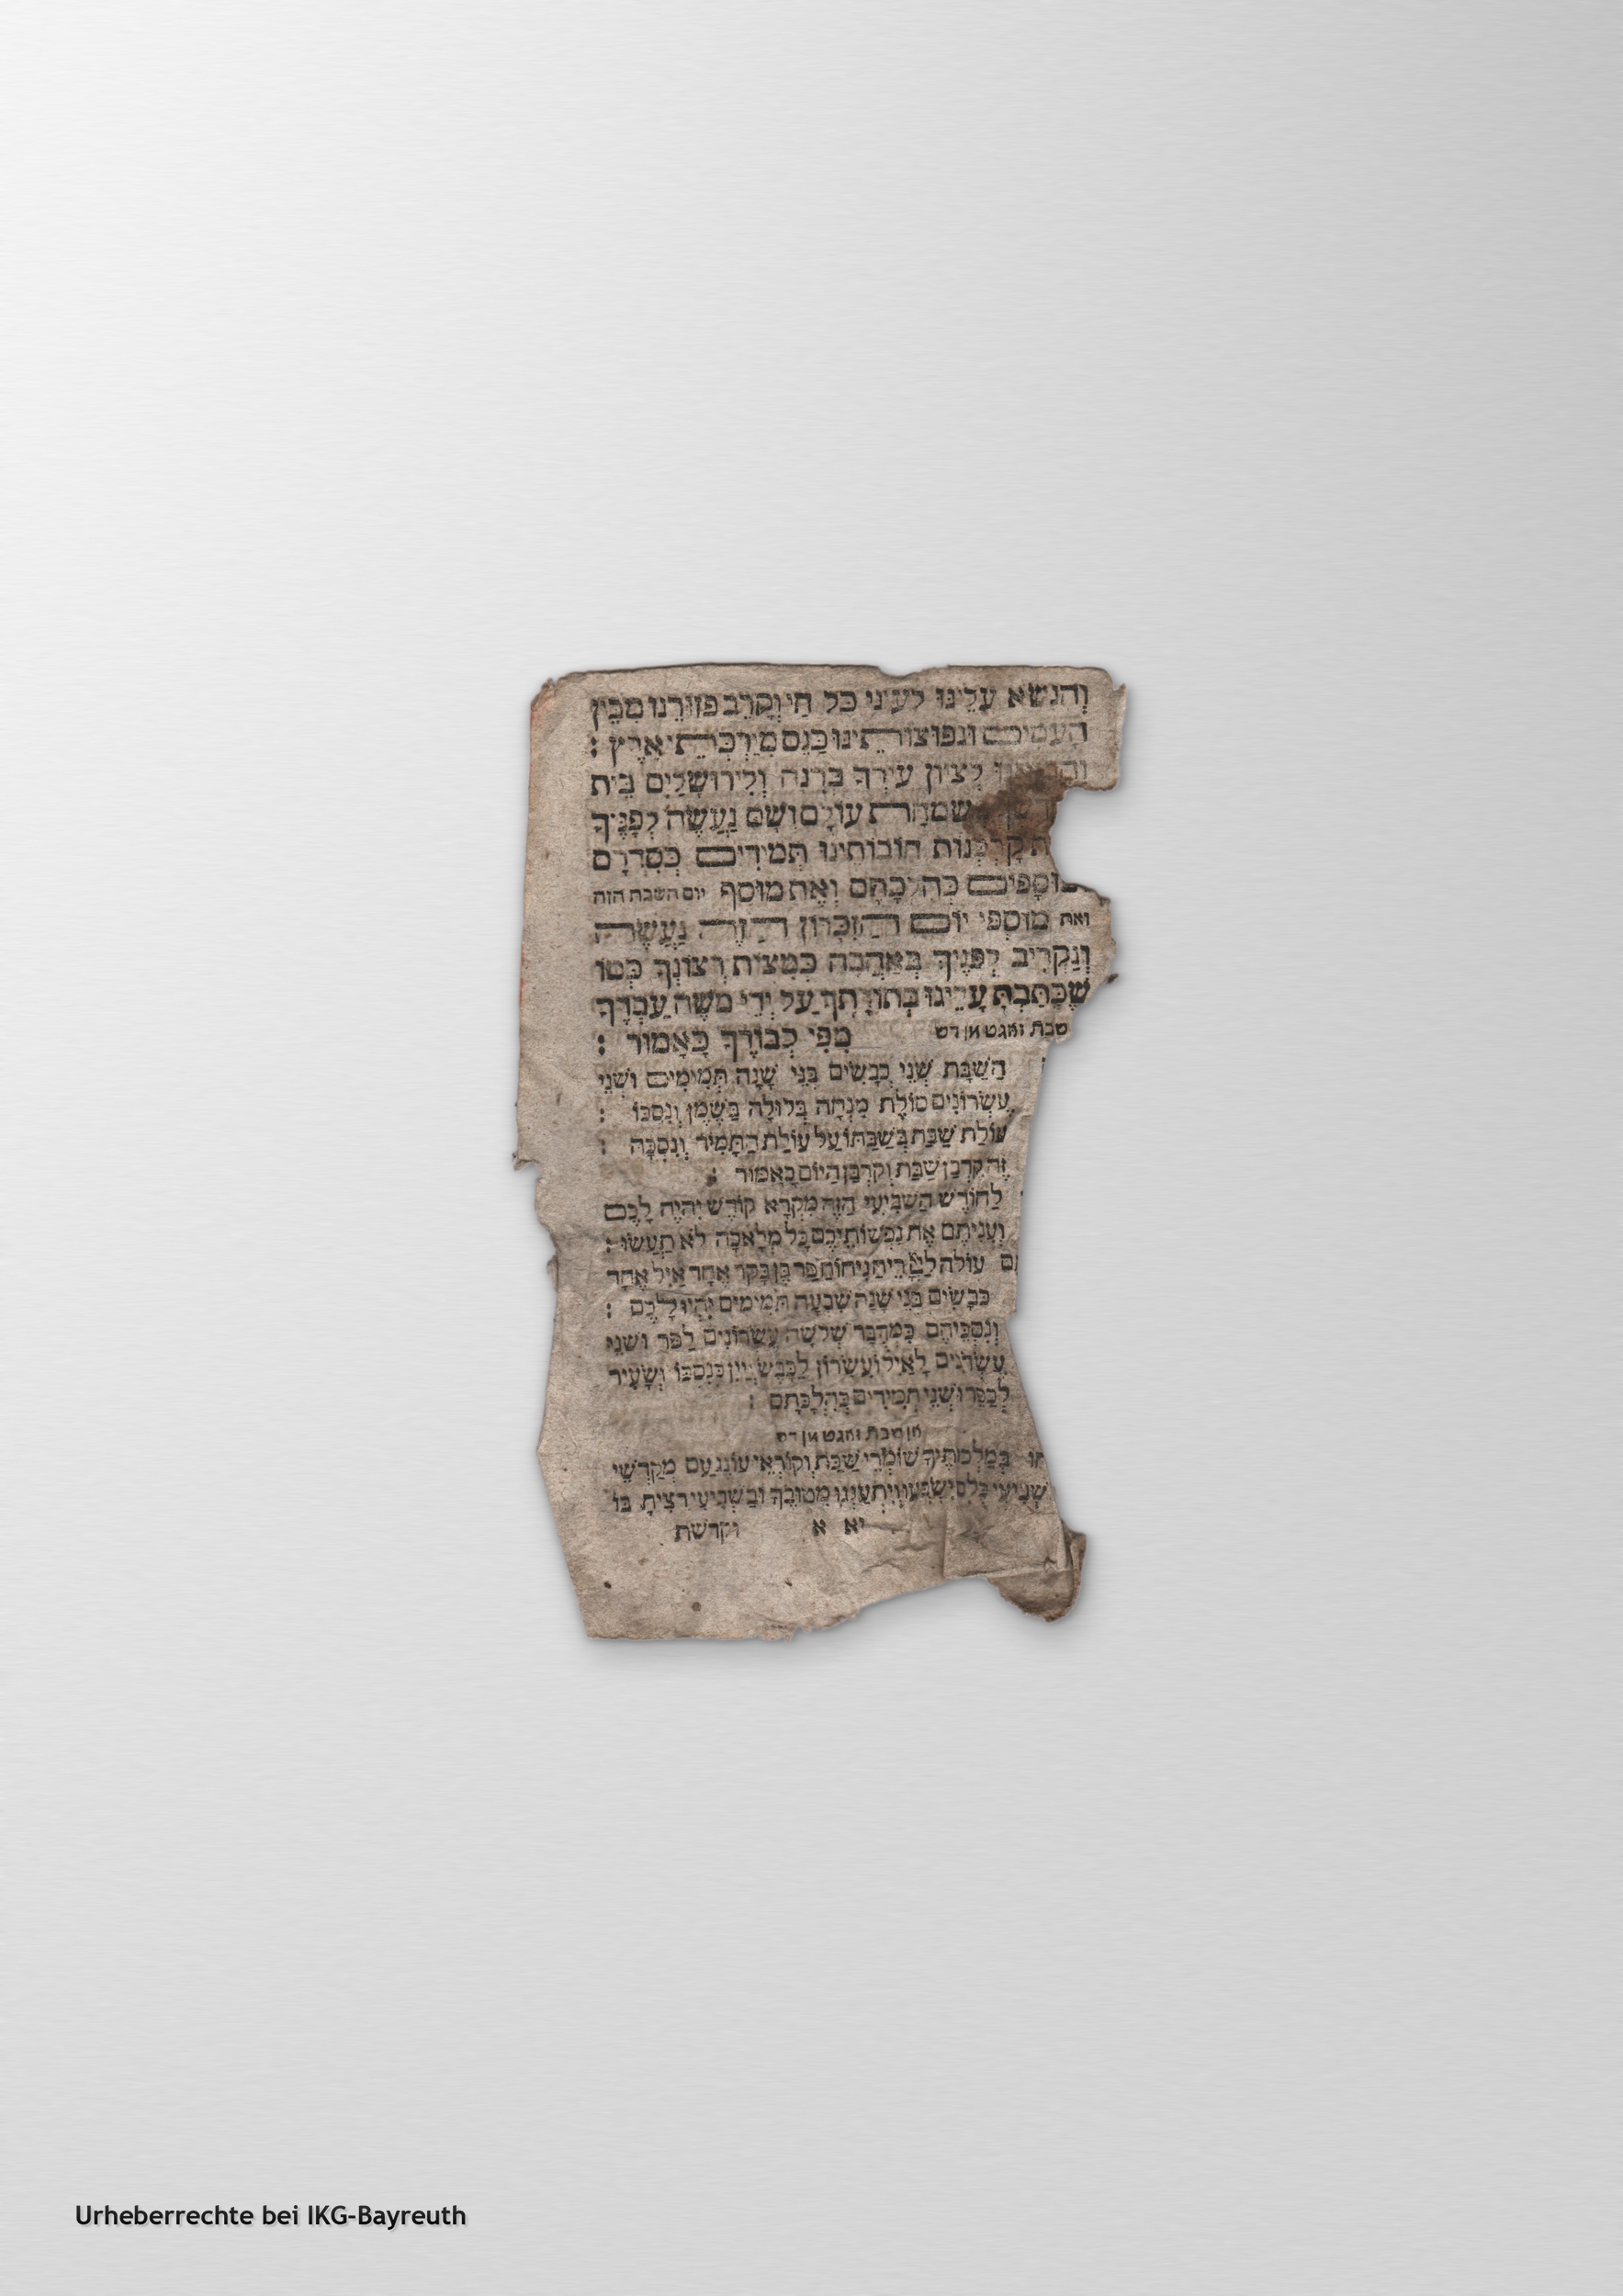 והנשא עלינו לעיני כל חי וקרב פזורנו מבין
העמים ונפוצותינו כנס מירכתי ארץ :
לציון עירך ברנה ולירושלים בית
שמחת עולם ושם נעשה לפניך
קרבנות חובותינו תמידים כסדרם
מוספים כהלכתם ואת מוסף יום השבת הזה
ואת מוספי יום הזכרון הזה נעשה
ונקריב לפניך באהבה כמצות רצונך כמו
שכתבת עלינו בתורתך על ידי משה עבדך
מפי כבודך כאמור : שבת זאגט מן דש
השבת שני כבשים בני שנה תמימים ושני
עשרונים סולת מנחה בלולה בשמן ונסכו :
עולת שבת בשבתו על עולת התמיד ונסכה :
זה קרבן שבת וקרבן היום כאמור :
לחודש השביעי הזה מקרא קודש יהיה לכם
ועניתם את נפשותיכם כל מלאכה לא תעשו :
עולה לריח ניחוח פר בן בקר אחד איל אחד
כבשים בני שנה שבעה תמימים יהיו לכם :
ונסכיהם כמדבר שלשה עשרונים לפר ושני
עשרונים לאיל ועשרון לכבש ויין כנסכו ושעיר
לכפר ושני תמידים כהלכתם :
שבת זאגט מן דש
במלכותיך שומרי שבת וקוראי עונג עם מקדשי
שביעי כלם ישבעו ויתענגו מטובך ובשביעי רצית בו
יא א וקדשת
Urheberrechte bei IKG-Bayreuth